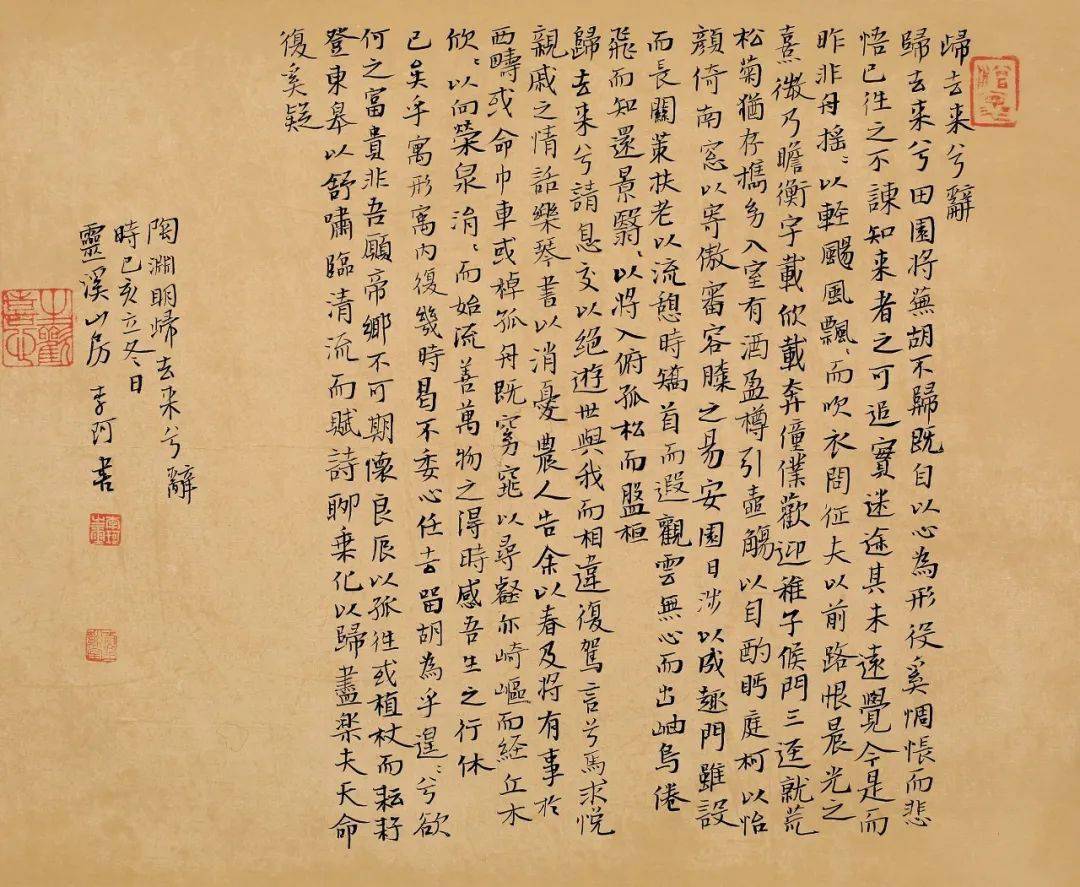 歸去来兮辭
歸去来兮田園将蕪胡不歸既自以心為形役奚惆悵而悲
悟已往之不諫知来者之可追實迷途其未遠覺今是而
昨非舟摇〻以輕颺風飄〻而吹衣問征夫以前路恨晨光之
熹微乃瞻衡宇載欣載奔僮僕歡迎稚子候門三逕就荒
松菊猶存携幼入室有酒盈樽引壺觴以自酌眄庭柯以怡
顏倚南窓以寄傲審容膝之易安園日涉以成趣門雖設
而長關策扶老以流憩時矯首而遐觀雲無心而出岫鳥倦
飛而知還景翳〻以将入俯孤松而盤桓
歸去来兮請息交以絕遊世與我而相違復駕言兮焉求悅
親戚之情話樂琴書以消憂農人告余以春及将有事於
西疇或命巾車或棹孤舟既窈窕以尋壑亦崎嶇而經丘木
欣〻以向榮泉涓〻而始流善萬物之得時感吾生之行休
已矣乎寓形寓内復幾時曷不委心任去留胡為乎遑〻兮欲
何之富貴非吾願帝鄉不可期懷良辰以孤往或植杖而耘耔
登東皋以舒嘯臨清流而賦詩聊乗化以歸盡樂夫天命
復奚疑
陶淵明歸去来兮辭
時己亥立冬日
靈溪山房李珂書